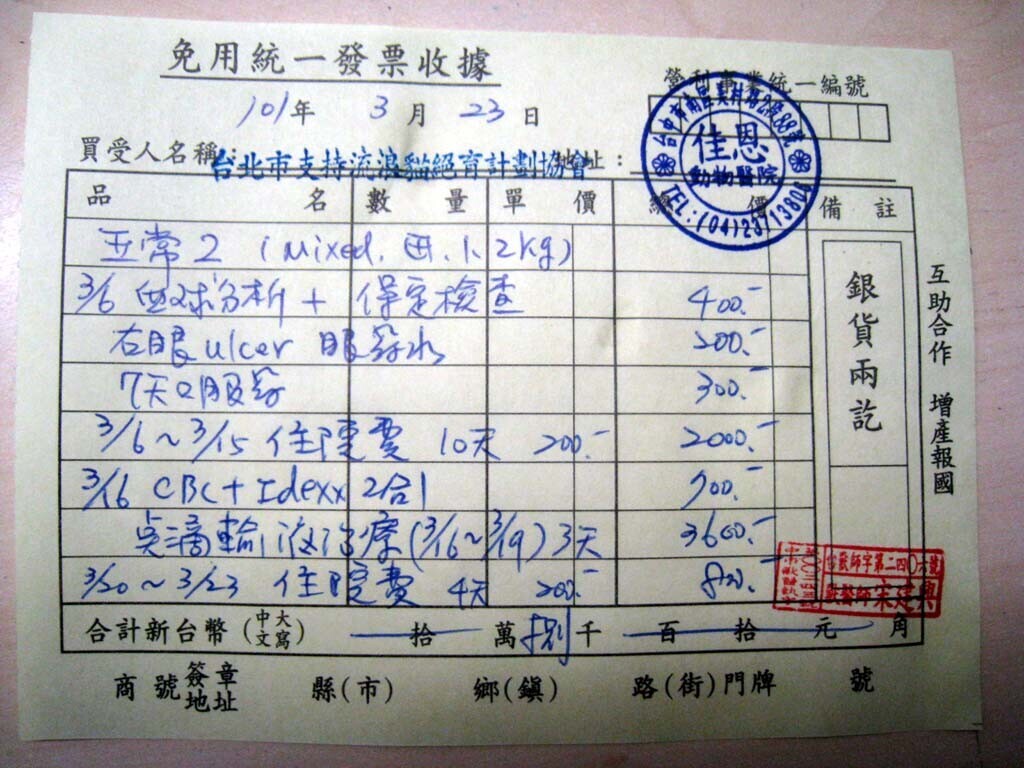 免用統一發票收據
營利事業統一編號
101年 3月 23日
買受人名稱：台北市支持流浪貓絕育計劃協會 地址：
台中市南區美村路2段88號
佳恩
動物醫院
TEL:(04)23713808
品名 數量 單價 總價 備註
正常2 (Mixed, 1.2kg)
3/6 血球分析+ 保定檢查 400.-
右眼ulcer 眼藥水 200.-
7天口服藥 300.-
3/6~3/15 住院費 10天 200.- 2000.-
3/16 CBC+Idexx 2合1 700.-
點滴輸液治療(3/16~3/19) 3天 3600.-
3/20~3/23 住院費 4天 200.- 800.-
銀貨兩訖
互助合作 增產報國
獸醫師宋建興
合計新台幣(中文大寫) 拾 萬 捌千 百 拾 元 角
商號簽章地址 縣(市) 鄉(鎮) 路(街)門牌 號